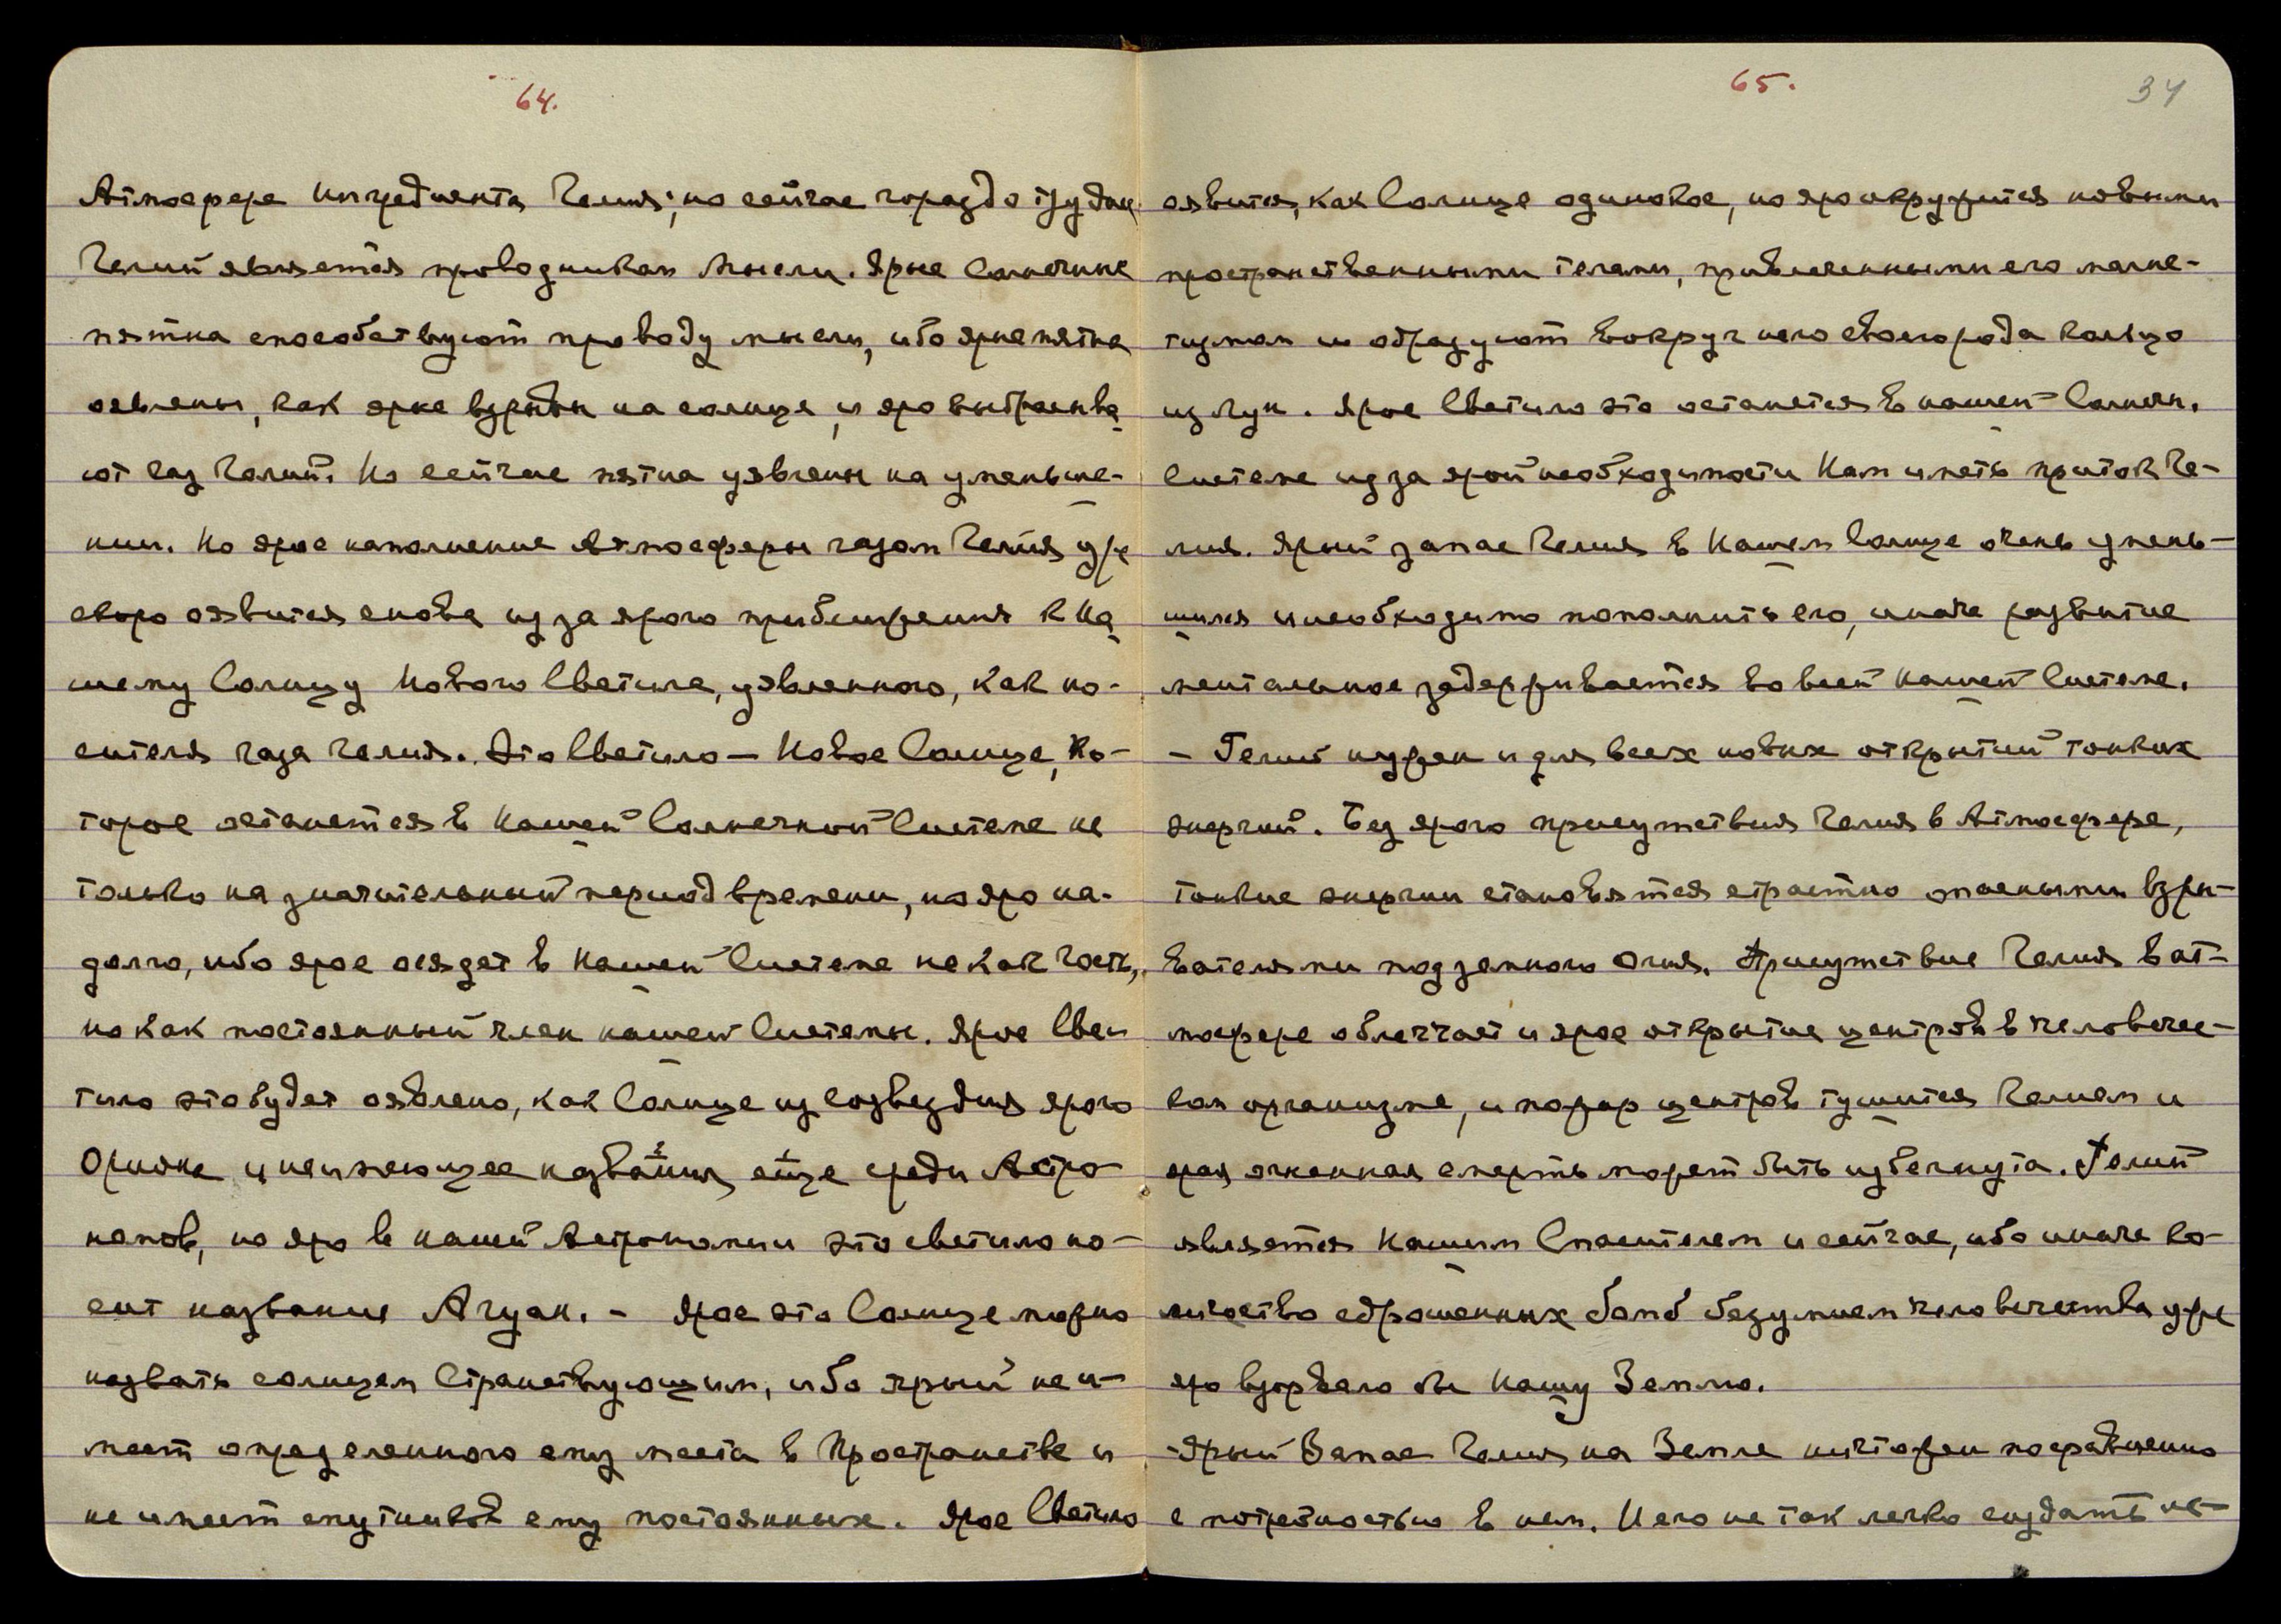 64.
Атмосфере ингредиента Гелия; но сейчас гораздо труднее
Гелий является проводником Мысли. Ярые Солнечные
пятна способствуют проводу мысли, ибо ярые пятна
оявлены, как ярые взрывы на солнце, и яро выбрасыва
ют газ Гелий. Но сейчас пятна уявлены на уменьше-
нии. Но ярое наполнение Атмосферы газом Гелия уже
скоро оявится снова из за ярого приближения к На
шему Солнцу Нового Светила, уявленного, как но-
сителя газа Гелия. Это Светило — Новое Солнце, Ко-
торое останется в Нашей Солнечной Системе не
только на значительный период времени, но яро на-
долго, ибо ярое осядет в Нашей Системе не как Гость,
но как постоянный член нашей Системы. Ярое Све
тило это будет оявлено, как Солнце из Созвездия ярого
Ориона и неимеющее названия еще среди Астро-
номов, но яро в нашей Астрономии это светило но-
сит название Агуан. - Ярое это Солнце можно
назвать солнцем Странствующим, ибо ярый не и-
меет определенного ему места в Пространстве и
не имеет спутников ему постоянных. Ярое Светило
65.
34
оявится, как Солнце одинокое, но яро окружится новыми
пространственными телами, привлеченными его магне-
тизмом и образуют вокруг него своего рода кольцо
из Лун. Ярое Светило это останется в нашей Солнечн.
Системе из за ярой необходимости Нам иметь приток Ге-
лия. Ярый запас Гелия в Нашем Солнце очень умень-
шился и необходимо пополнить его, иначе развитие
ментальное задерживается во всей нашей Системе.
- Гелий нужен и для всех новых открытий тонких
энергий. Без ярого присутствия Гелия в Атмосфере,
тонкие энергии становятся страстно опасными взры-
вателями подземного Огня. Присутствие Гелия в ат-
мосфере облегчает и ярое открытие центров в человечес-
ком организме, и пожар центров тушится Гелием и
ярая огненная смерть может быть избегнута. Гелий
является Нашим Спасителем и сейчас, ибо иначе ко-
личество сброшенных бомб безумием человечества уже
яро взорвало бы Нашу Землю.
-Ярый Запас Гелия на Земле ничтожен по сравнению
с потребностью в нем. И его не так легко создать не-